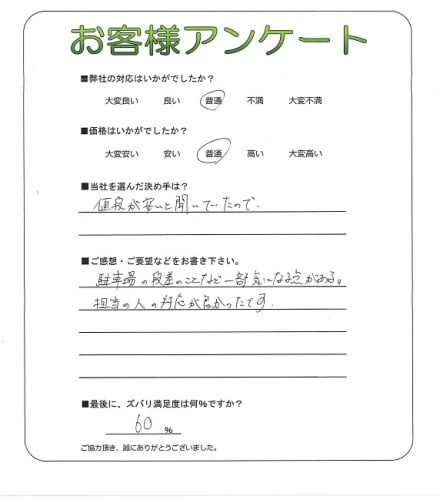 お客様アンケート
■弊社の対応はいかがでしたか?
大変良い 良い 普通 不満 大変不満
■価格はいかがでしたか?
大変安い 安い 普通 高い 大変高い
■当社を選んだ決め手は?
値段が安いと聞いていたので。
■ご感想・ご要望などをお書き下さい。
駐車場の段差のことなど一部気になる点がある。
担当の人の対応が良かったです。
■最後に、ズバリ満足度は何%ですか?
60 %
ご協力頂き、誠にありがとうございました。